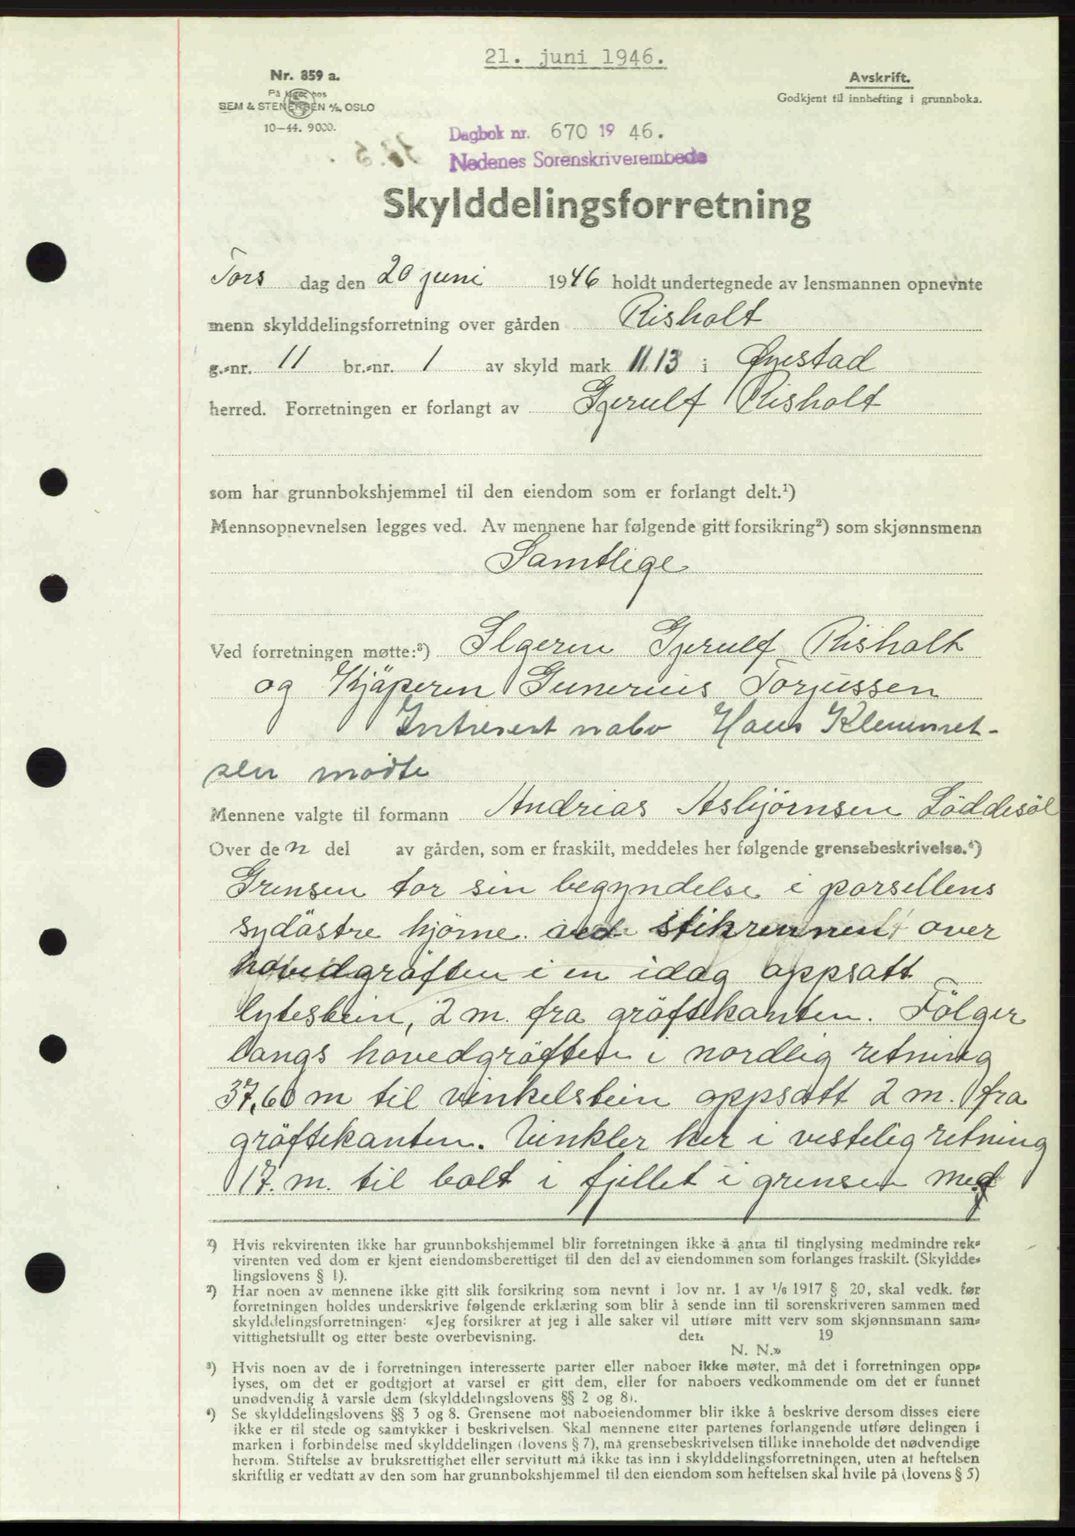 21. juni 1946.
Nr. 859 a.
På lager hos
SEM & STENERSEN A/S, OSLO
10—44. 9000.
Avskrift.
Godkjent til innhefting i grunnboka.
Dagbok nr. 670 19 46.
Nedenes Sorenskriverembede
Skylddelingsforretning
Tors dag den 20 juni 1946 holdt undertegnede av lensmannen opnevnte
menn skylddelingsforretning over gården Risholt
g.-nr. 11 br.-nr. 1 av skyld mark 11.13 i Øyestad
herred. Forretningen er forlangt av Gjerulf Risholt
som har grunnbokshjemmel til den eiendom som er forlangt delt.¹)
Mennsopnevnelsen legges ved. Av mennene har følgende gitt forsikring²) som skjønnsmenn
Samtlige
Ved forretningen møtte:³) Selgeren Gjerulf Risholt
og Kjöperen Gunerius Torjussen
Intresert nabo Hans Klemmet-
sen mödte
Mennene valgte til formann Andrias Asbjörnsen Löddesöl
Over den del av gården, som er fraskilt, meddeles her følgende grensebeskrivelse.⁴)
Grensen tar sin begyndelse i parsellens
sydöstre hjörne ved stikrennen over
hovedgröften i en idag oppsatt
bytestein, 2 m. fra gröftekanten. Fölger
langs hovedgröften i nordlig retning
37,60 m til vinkelstein oppsatt 2 m. fra
gröftekanten. Vinkler her i vestelig retning
17. m. til bolt i fjellet i grensen med
¹) Hvis rekvirenten ikke har grunnbokshjemmel blir forretningen ikke å anta til tinglysing medmindre rek-
virenten ved dom er kjent eiendomsberettiget til den del av eiendommen som forlanges fraskilt. (Skyldde-
lingslovens § 1).
²) Har noen av mennene ikke gitt slik forsikring som nevnt i lov nr. 1 av 1/6 1917 § 20, skal vedk. før
forretningen holdes underskrive følgende erklæring som blir å sende inn til sorenskriveren sammen med
skylddelingsforretningen: «Jeg forsikrer at jeg i alle saker vil utføre mitt verv som skjønnsmann sam-
vittighetsfullt og etter beste overbevisning. den 19
N. N.»
³) Hvis noen av de i forretningen interesserte parter eller naboer ikke møter, må det i forretningen opp-
lyses, om det er godtgjort at varsel er gitt dem, eller for naboers vedkommende om det er funnet
unødvendig å varsle dem (skylddelingslovens §§ 2 og 8).
⁴) Se skylddelingslovens §§ 3 og 8. Grensene mot naboeiendommer blir ikke å beskrive dersom disses eiere
ikke er til stede og samtykker i beskrivelsen. Skal mennene etter partenes forlangende utføre delingen i
marken i forbindelse med skylddelingen (lovens § 7), må grensebeskrivelsen tillike inneholde det nødvendige
herom. Stiftelse av bruksrettighet eller servitutt må ikke tas inn i skylddelingsforretningen, uten at heftelsen
skriftlig er vedtatt av den som har grunnbokshjemmel til den eiendom som heftelsen skal hvile på (lovens § 5)